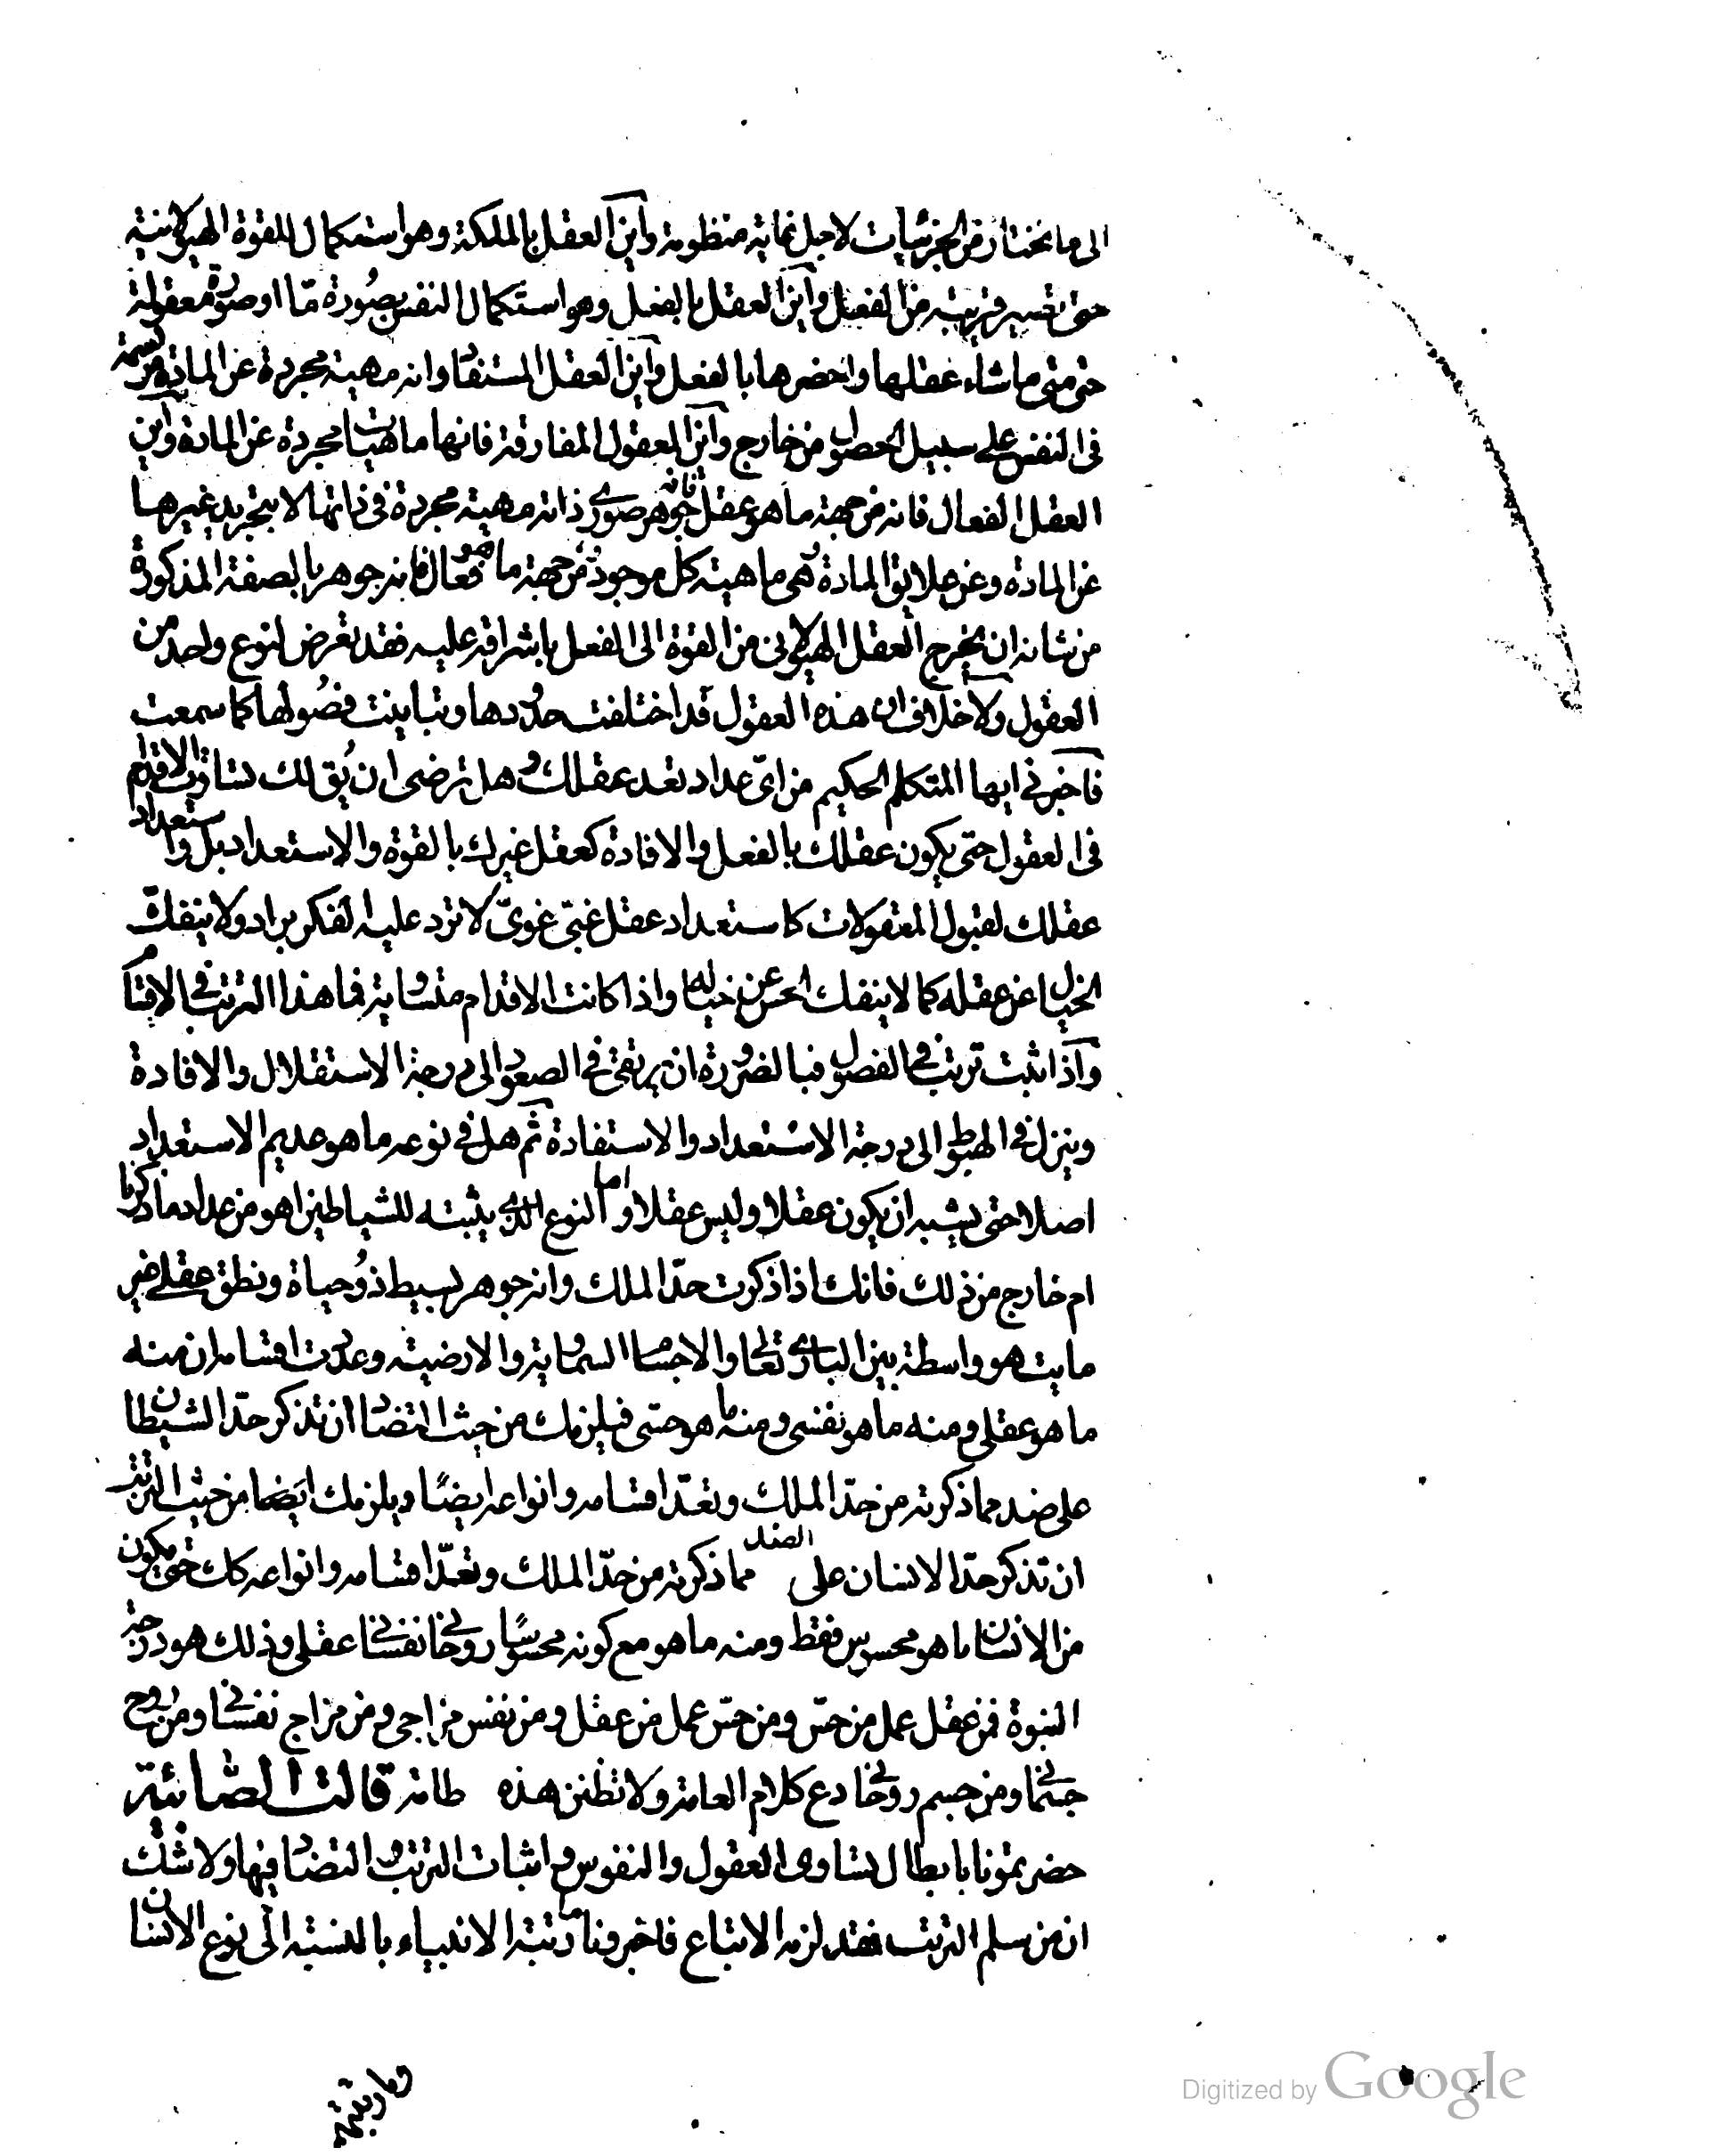 الى ما يختار من الجزئيات لاجل غاية مظنونة واين العقل بالملكة وهو استكمال للقوة الهيولانية
حتى تصير قريبة من الفعل واين العقل بالفعل وهو استكمال النفس بصورة ما او صورة معقولة
حتى متى ما شاء عقلها واحضرها بالفعل واين العقل المستفاد وانه مهية مجردة عن المادة مرتسمة
فى النفس على سبيل الحصول من خارج واين العقول المفارقة فانها ماهيات مجردة عن المادة واين
العقل الفعال فانه من جهة ما هو عقل فانه جوهر صورى ذاته مهية مجردة فى ذاتها لا بتجريد غيرها
عن المادة وعن علايق المادة هى ماهية كل موجود ومن جهة ما هو فعال فانه جوهر بالصفة المذكورة
من شانه ان يخرج العقل الهيولانى من القوة الى الفعل باشراقه عليه فقد تعرض لنوع واحد من
العقول ولا خلاف ان هذه العقول قد اختلفت حدودها وتباينت فصولها كما سمعت
فاخبرنى ايها المتكلم الحكيم من اى عداد تعد عقلك وهل ترضى ان يق لك تساوت الاقدام
فى العقول حتى يكون عقلك بالفعل والافادة كعقل غيرك بالقوة والاستعداد بل واستعداد
عقلك لقبول المعقولات كاستعداد عقل غبى غوى لا ترد عليه الفكر براد ولا ينفك
الخيال عن عقله كما لا ينفك الحس عن خياله واذا كانت الاقدام متساوية فما هذا الترتيب فى الاقسام
واذا ثبت ترتيب فى الفصول فبالضرورة ان يرتقى فى الصعود الى درجة الاستقلال والافادة
وينزل فى الهبوط الى درجة الاستعداد والاستفادة ثم هل فى نوعه ما هو عديم الاستعداد
اصلا حتى يشبه ان يكون عقلا وليس عقلا واما النوع الذى يثبته للشياطين اهو من عداد ما ذكرنا
ام خارج من ذلك فانك اذا ذكرت حد الملك وانه جوهر بسيط ذو حياة ونطق عقلى غير
مايت هو واسطة بين البارى تعالى والاجسام السماوية والارضية وعددت اقسامه ان منه
ما هو عقلى ومنه ما هو نفسى ومنه ما هو حسى فيلزمك من حيث التضاد ان تذكر حد الشيطان
على ضد مما ذكرته من حد الملك وتعد اقسامه وانواعه ايضا ويلزمك ايضا من حيث الترتب
ان تذكر حد الانسان على الضد مما ذكرته من حد الملك وتعد اقسامه وانواعه كك حتى يكون
من الانسان ما هو محسوس فقط ومنه ما هو مع كونه محسوسا روحانى نفسانى عقلى وذلك هو درجة
النبوة فمن عقل عمل من حس ومن حس عمل من عقل ومن نفس مزاجى ومن مزاج نفسانى ومن روح
جسمانى ومن جسم روحانى دع كلام العامة ولا تظنن هذه طامة قالت الصائبة
حضرتمونا بابطال تساوى العقول والنفوس واثبات الترتب والتضاد فيها ولا شك
ان من سلم الترتب فقد لزمه الاتباع فاخبرونا ما رتبة الانبياء بالنسبة الى نوع الانسان
وما رتبتهم
Digitized by Google